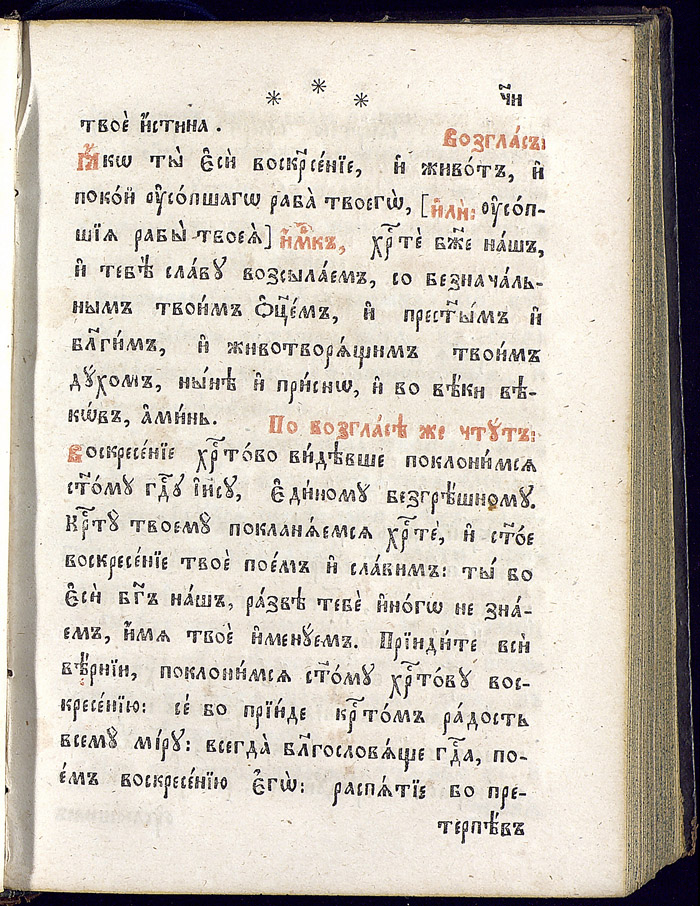 * * *
ч҃н
твоѐ и҆́стина .
Возгла́съ:
Ꙗ҆́кѡ ты̀ є҆сѝ воскрⷭ҇се́нїе, и҆ живо́тъ, и҆
поко́й ᲂу҆со́пшагѡ раба̀ твоегѡ̀, [и҆лѝ: ᲂу҆со́п-
шїѧ рабы̀ твоеѧ̀] и҆́мⷬ҇къ, хрⷭ҇тѐ бж҃е на́шъ,
и҆ тебѣ̀ сла́вꙋ возсыла́емъ, со безнача́ль-
нымъ твои́мъ ѻ҆ц҃е́мъ, и҆ прест҃ы́мъ и҆
бл҃ги́мъ, и҆ животворѧ́щимъ твои́мъ
дꙋ́хомъ, ны́нѣ и҆ при́снѡ, и҆ во вѣ́ки вѣ-
кѡ́въ, а҆ми́нь.
По возгла́сѣ же чтꙋ́тъ:
Воскресе́нїе хрⷭ҇то́во ви́дѣвше поклони́мсѧ
ст҃о́мꙋ гдⷭ҇ꙋ і҆и҃сꙋ, є҆ди́номꙋ безгрѣ́шномꙋ.
Крⷭ҇тꙋ̀ твоемꙋ̀ покланѧ́емсѧ хрⷭ҇тѐ, и҆ ст҃о́е
воскресе́нїе твоѐ пое́мъ и҆ сла́вимъ: ты́ бо
є҆сѝ бг҃ъ на́шъ, ра́звѣ тебѐ и҆но́гѡ не зна́-
емъ, и҆́мѧ твоѐ и҆менꙋ́емъ. Прїиди́те всѝ
вѣ́рнїи, поклони́мсѧ ст҃о́мꙋ хрⷭ҇то́вꙋ вос-
кресе́нїю: се́ бо прїи́де крⷭ҇то́мъ ра́дость
всемꙋ̀ мі́рꙋ: всегда̀ бл҃гословѧ́ще гдⷭ҇а, по-
е́мъ воскресе́нїю є҆гѡ̀: распѧ́тїе бо пре-
терпѣ́въ